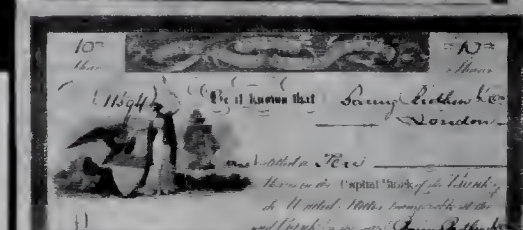 10 10
Shares Shares
(11894) Be it known that Baring Brothers & Co
London
are entitled to Ten
Shares in the Capital Stock of the Bank of
the United States transferable at the
said Bank by the said Baring Brothers